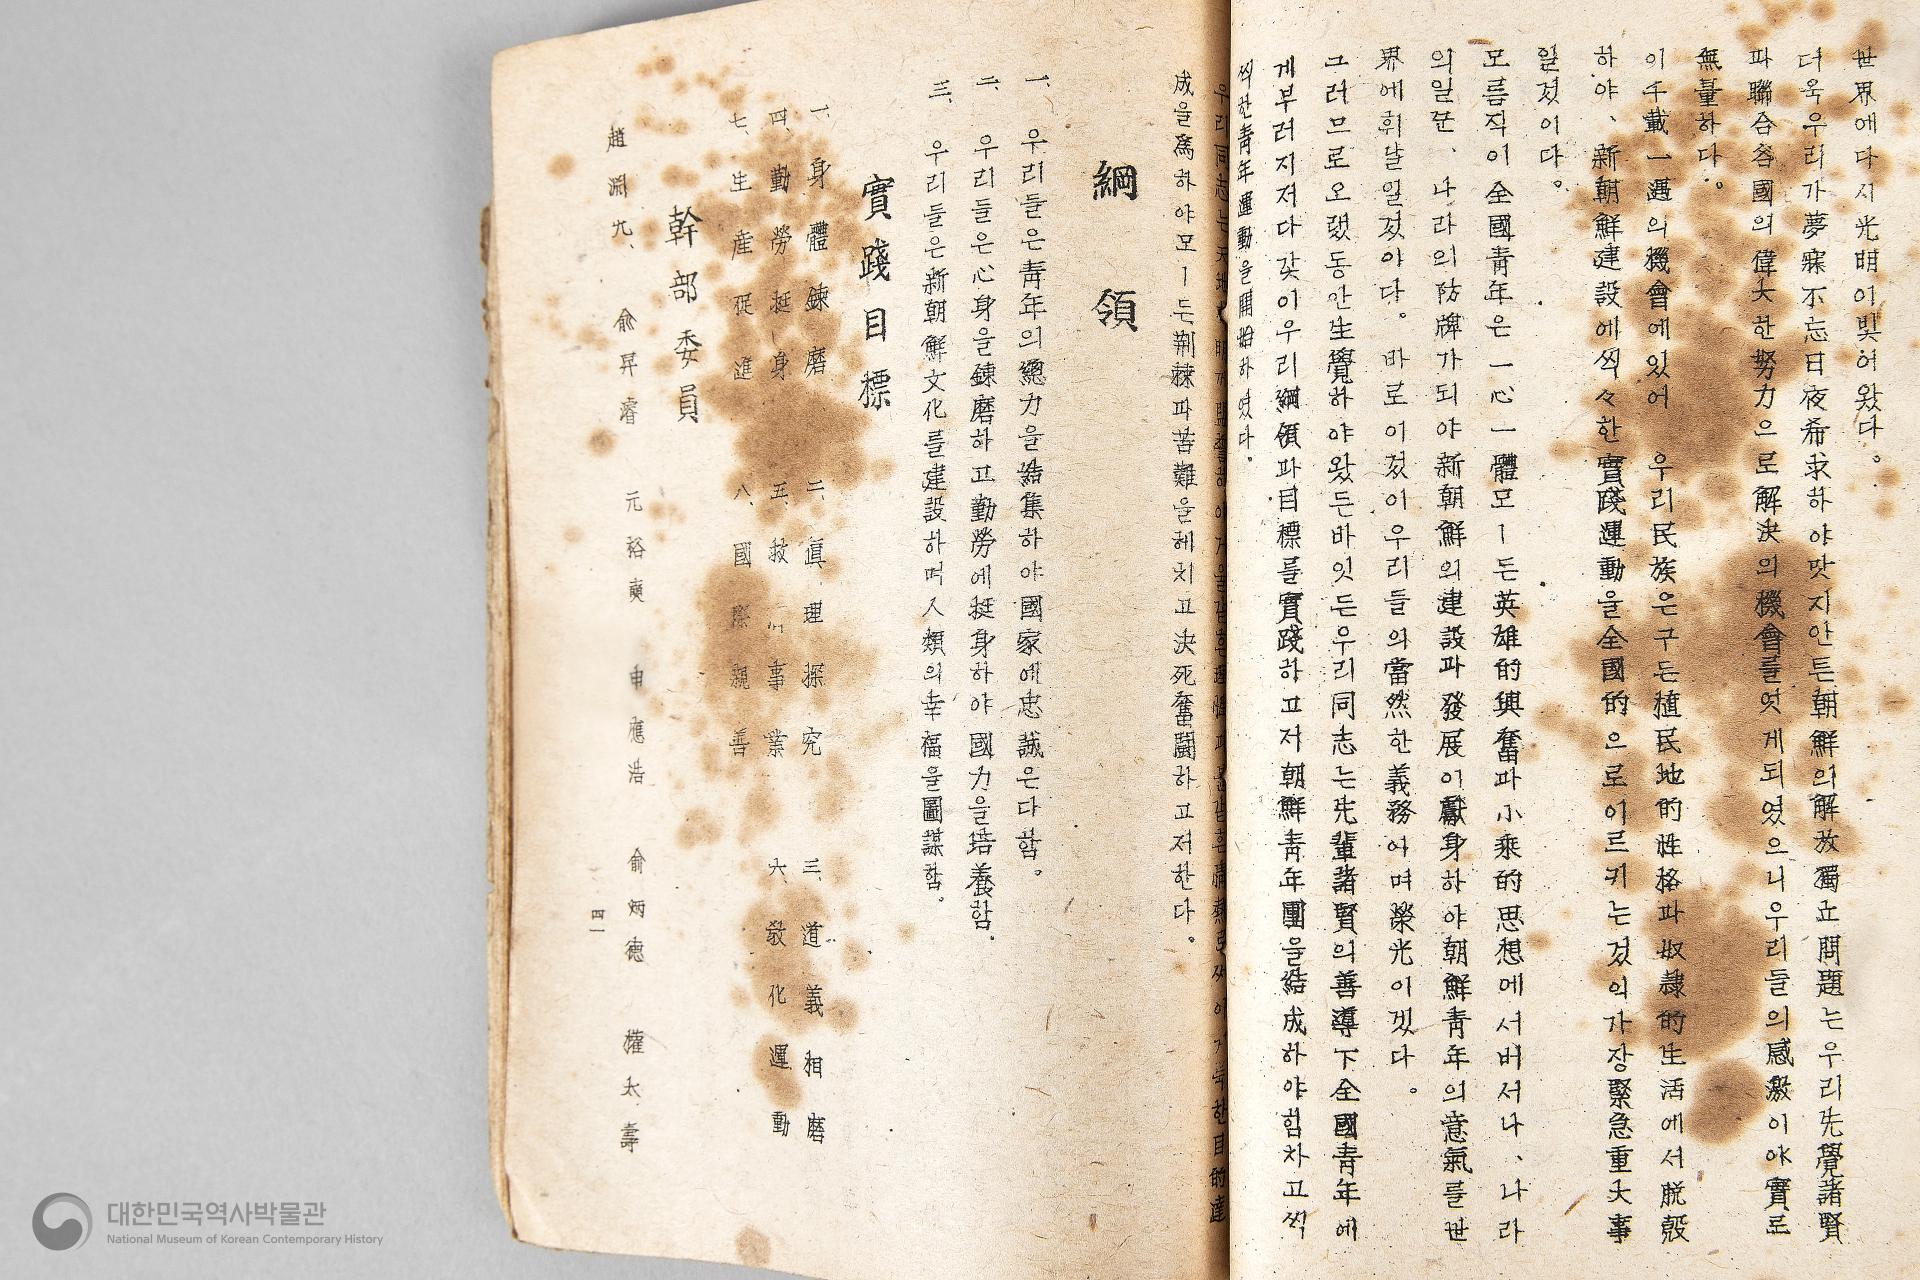 世界에다시光明이빛어왔다。
더욱우리가夢寐不忘日夜希求하야맛지안튼朝鮮의解放獨立問題는우리先覺諸賢
파聯合各國의偉大한努力으로解決의機會를엇게되였으니우리들의感激이야實로
無量하다。
이千載一遇의機會에있어 우리民族은구든植民地的性格파奴隷的生活에서脫殼
하야、新朝鮮建設에씩々한實踐運動을全國的으로이르키는것의가장緊急重大事
일것이다。
모름직이全國靑年은一心一體모ー든英雄的興奮파小乘的思想에서버서나、나라
의일꾼、나라의防牌가되야新朝鮮의建設과發展이獻身하야朝鮮靑年의意氣를世
界에휘날일것아다。바로이것이우리들의當然한義務이며榮光이겠다。
그러므로오랬동안生覺하야왔든바잇든우리同志는先輩諸賢의善導下全國靑年에
게부러지저다갗이우리綱領파目標를實踐하고저朝鮮靑年團을結成하야힘차고씩
씩한靑年運動을開始하였다。
우리同志는天地 目的達
成을爲하야모ー든荆棘파苦難을헤치고決死奮鬪하고저한다。
綱領
一、우리들은靑年의總力을結集하야國家에忠誠은다함。
二、우리들은心身을鍊磨하고勤勞에挺身하야國力을培養함.
三、우리들은新朝鮮文化를建設하며人類의幸福을圖謀함.
實踐目標
一、身體鍊磨 二、眞理探究 三、道義相磨
四、勤勞挺身 五、救 事業 六、敎化運動
七、生産促進 八、國際親善
幹部委員
趙淵 、 兪昇濬 元裕奭 申應浩 兪炳德 權太壽
四一
대한민국역사박물관
National Museum of Korean Contemporary History